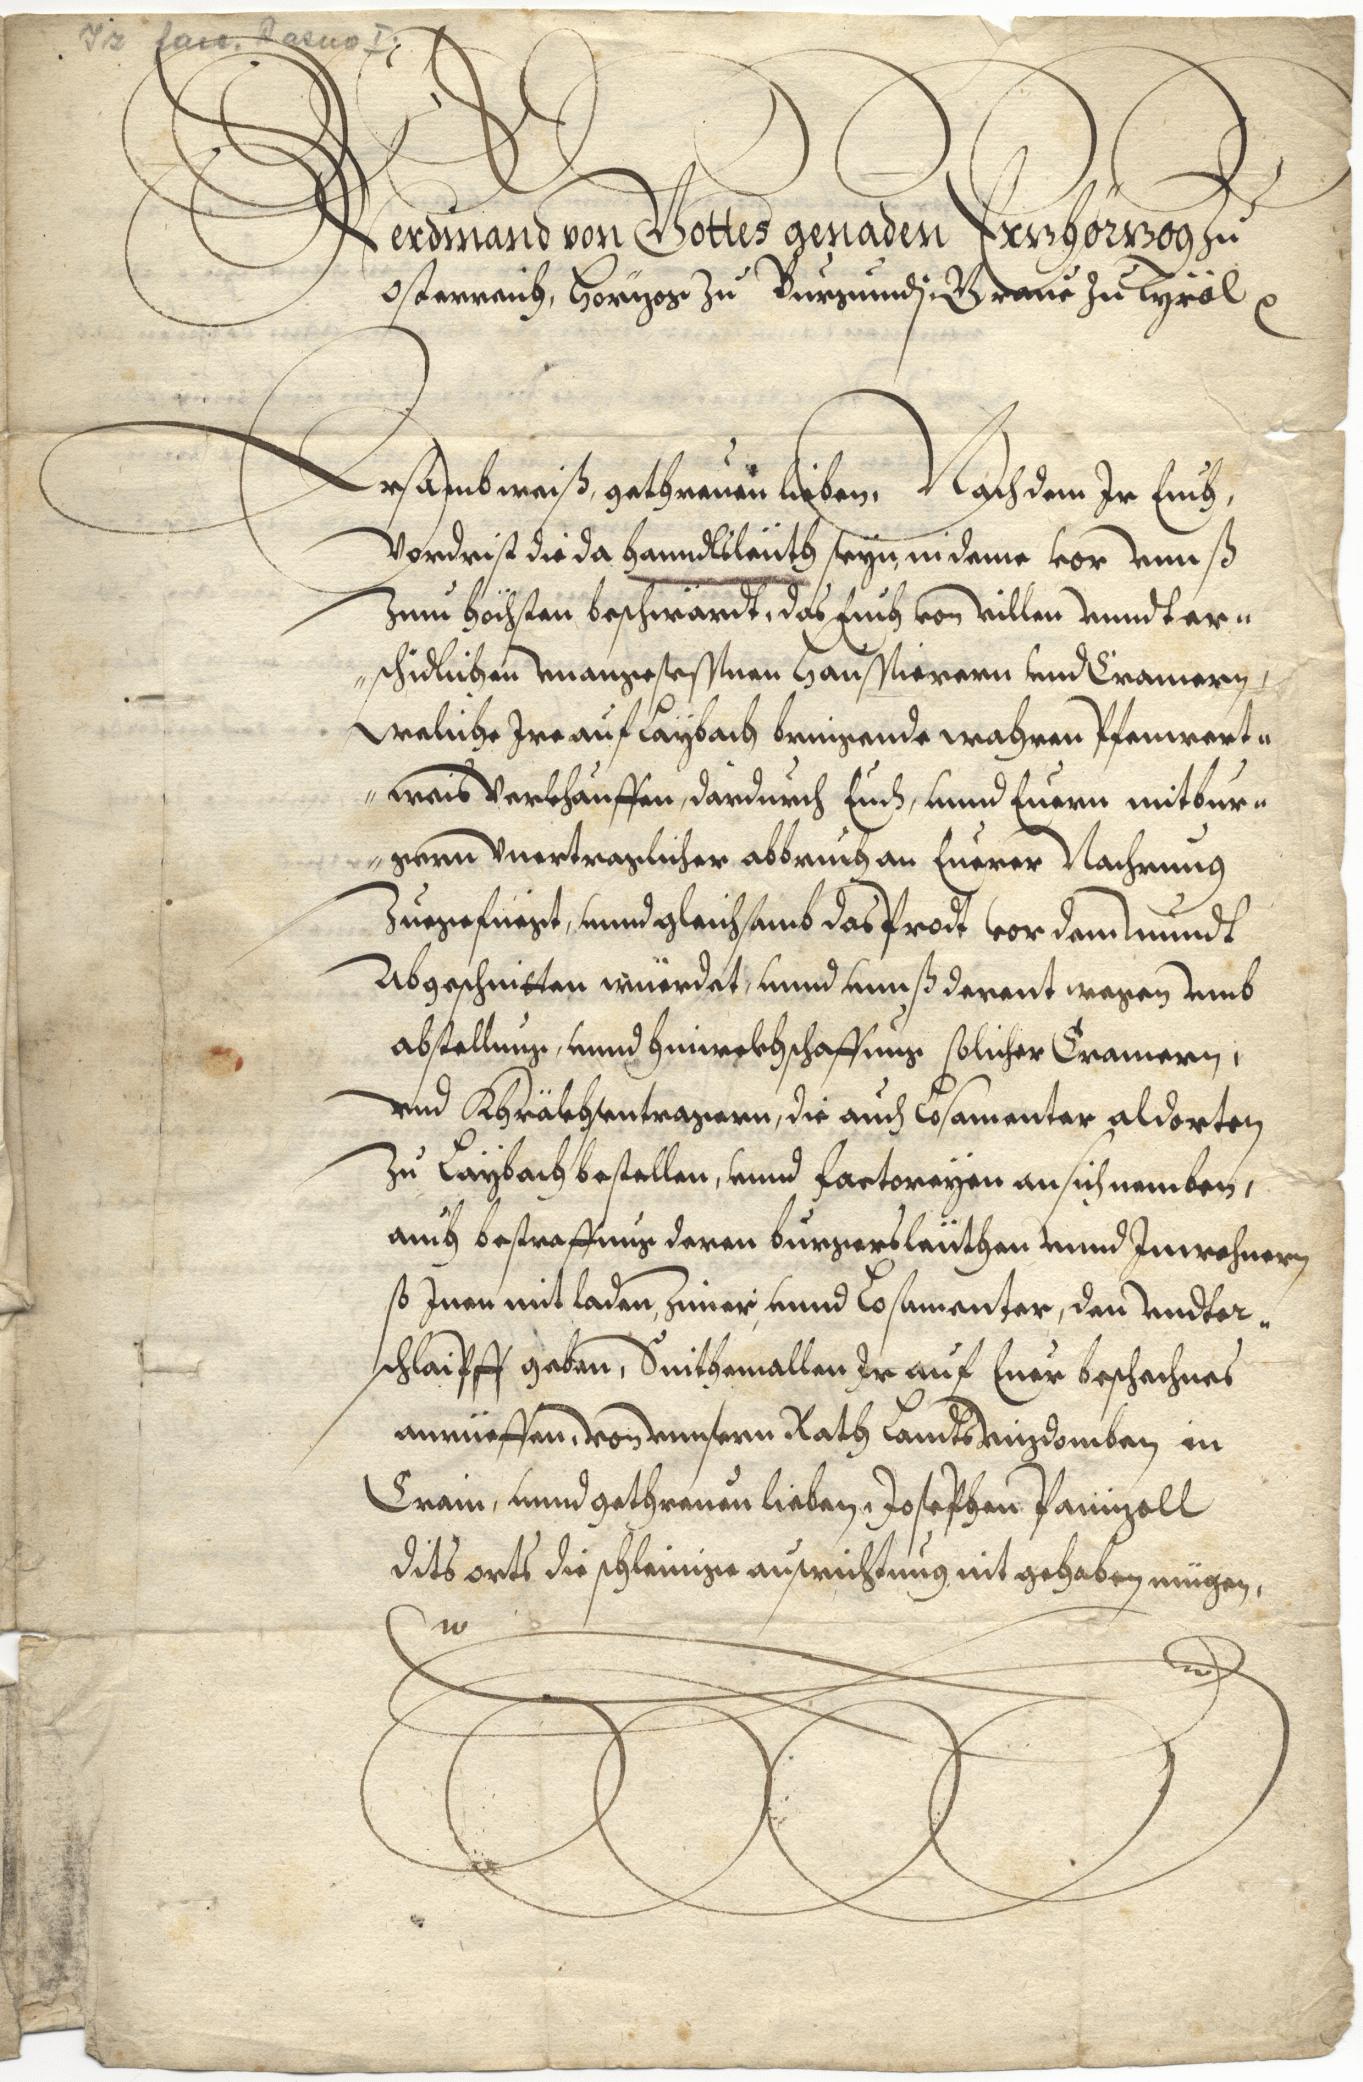 Iz fasc. Razno I.
Ferdinand von Gottes genaden Erzhörzog zu
Osterreich, Hörzog zu Burgundj, Graue zu Tyröl
Ersamb weiß, gethreuen lieben. Nachdem Ir Euch,
Vordrist die da Hanndlsleüth seyn, in deme vor unnß
zum höchsten beschwärdt, das Euch von villen unndter=
=schidlichen unangesessnen Haussierern und Cramern,
weliche Ire auf Laybach bringende wahren Pfenwert=
=weis Verkhauffen, dardurch Euch, unnd Euern mitbur=
=gern Vnertraglicher abbruch an Euerer Nahrung
Zuegefüegt, unnd gleichsamb das Prodt vor dem mundt
Abgeschnitten wüerdet, unnd unnß derentwegen umb
abstellung, unnd hinwekhschaffung solicher Cramern,
und Khräkhsentragern, die auch Losamenter aldorten
zu Laybach bestellen, unnd factoreyen an sich nemben,
auch bestraffung deren burgersleüthen unnd Inwohnern
so Inen mit laden, Zimer, unnd Losamenter, den undter=
schlaipff geben, Seithemallen Ir auf Euer beschechnes
anrüeffen, von unnsern Rath Landts Vizdomben in
Crain, unnd gethreuen lieben, Josephen Panizoll
dits orts die schleinige ausrichtung nit gehaben mügen,